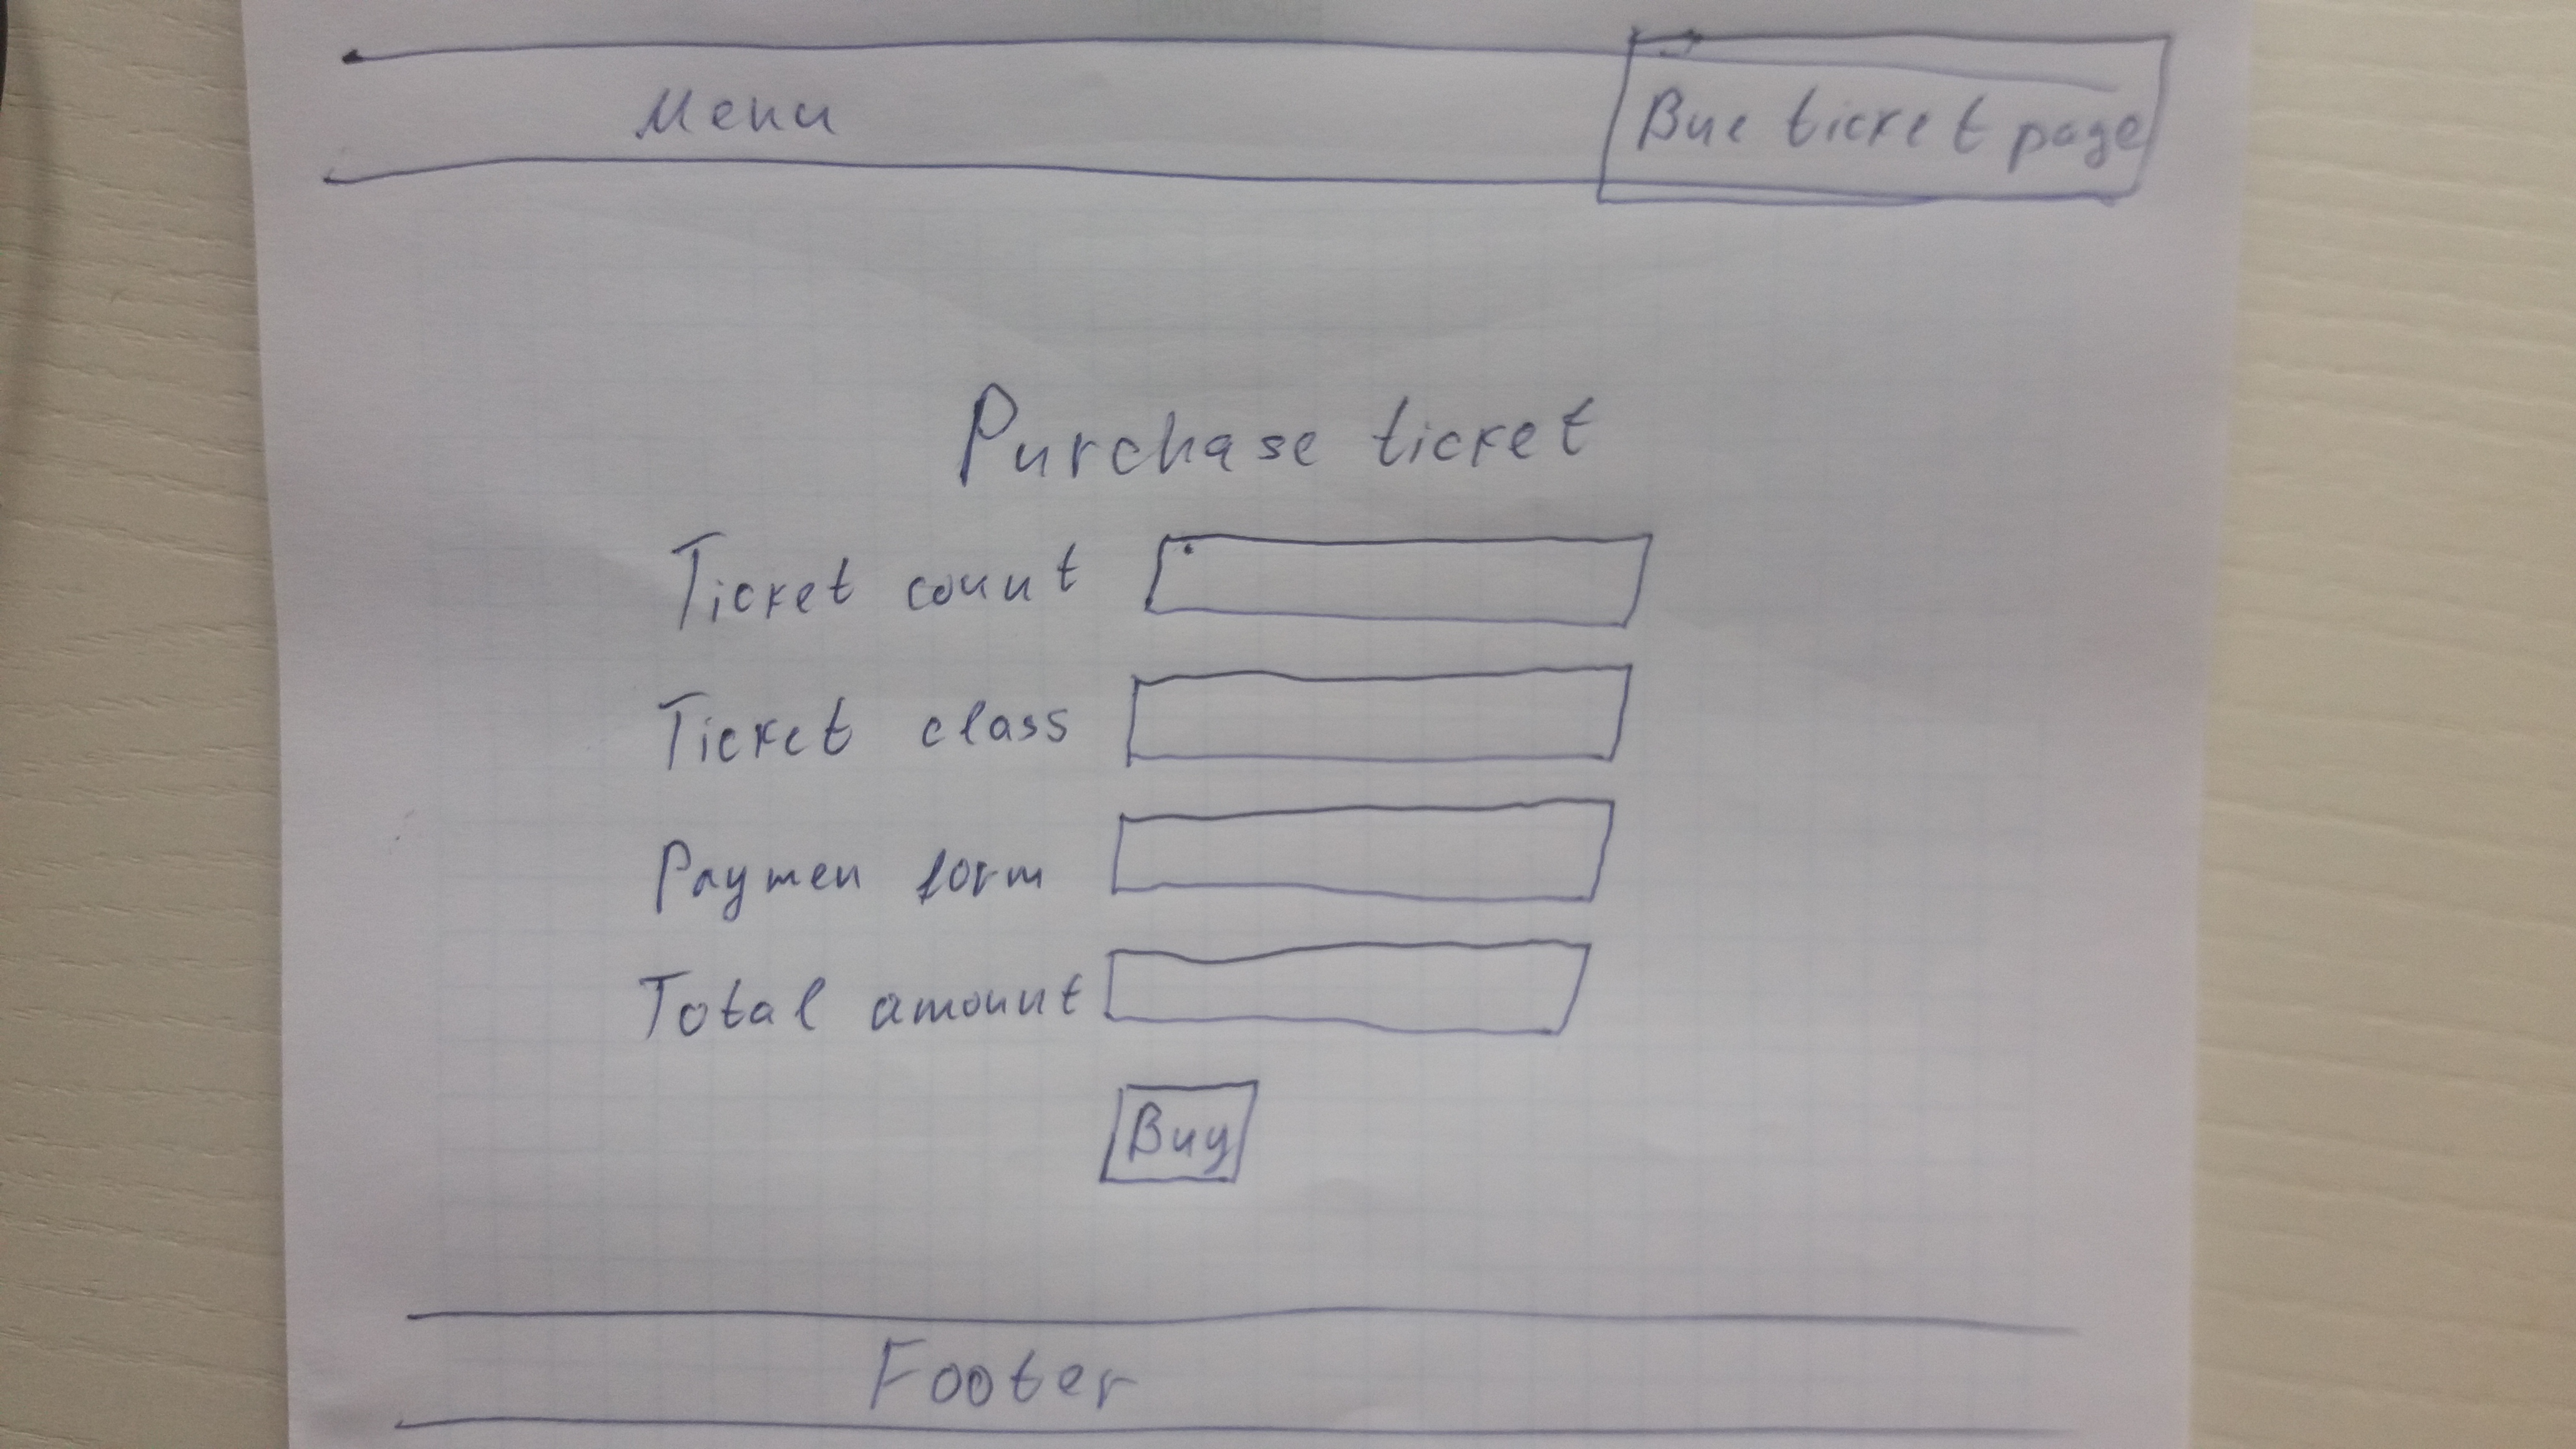 Menu
Bue ticket page
Purchase ticket
Ticket count
Ticket class
Paymen form
Total amount
Buy
Footer